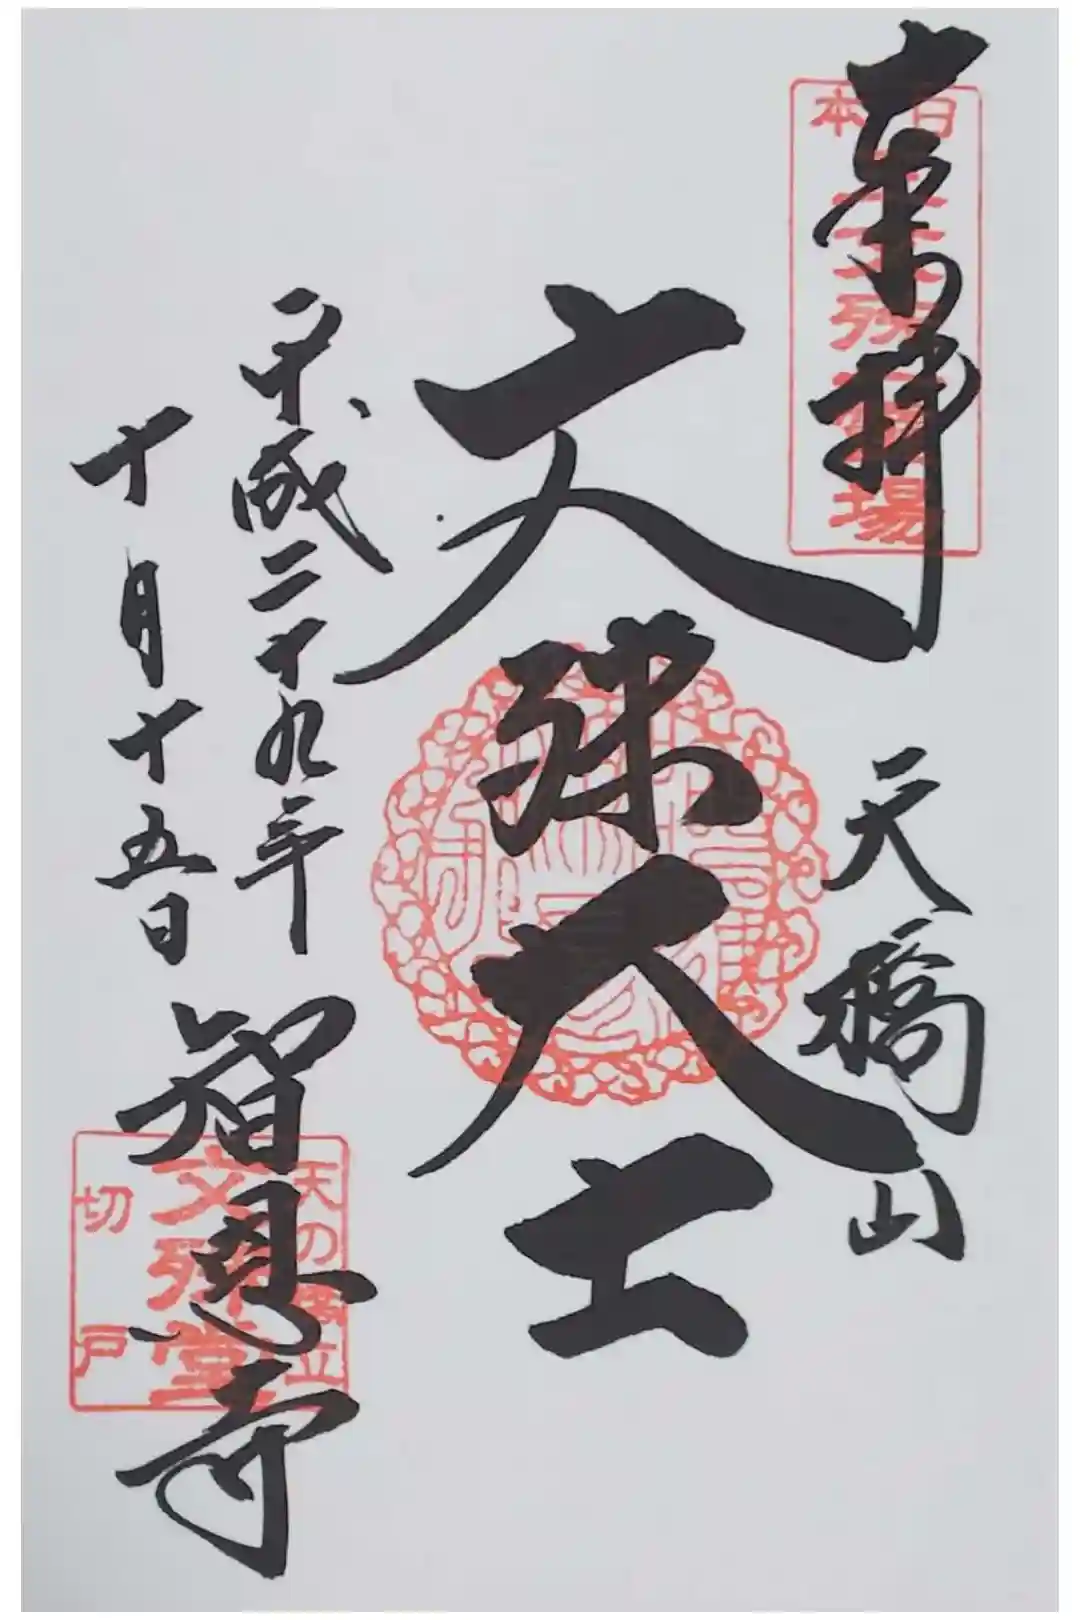 奉拝
日本三文殊霊場
天橋山
文殊大士
平成二十九年
十月十五日
智恩寺
天の橋立
文殊堂
切戸